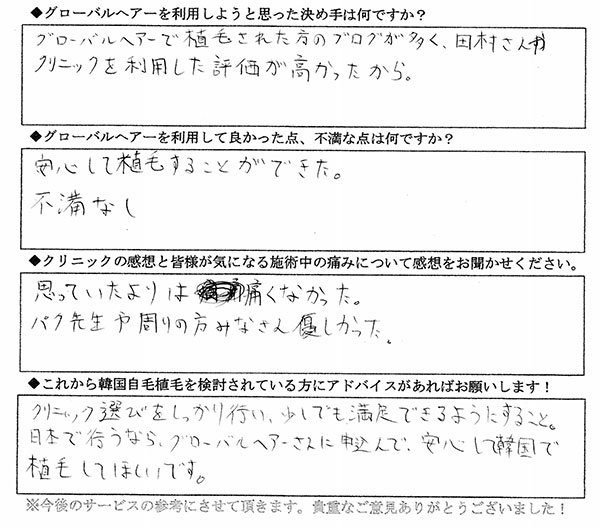 ◆グローバルヘアーを利用しようと思った決め手は何ですか？
グローバルヘアーで植毛された方のブログが多く、田村さんや
クリニックを利用した評価が高かったから。
◆グローバルヘアーを利用して良かった点、不満な点は何ですか？
安心して植毛することができた。
不満なし
◆クリニックの感想と皆様が気になる施術中の痛みについて感想をお聞かせください。
思っていたよりは痛くなかった。
パク先生や周りの方みなさん優しかった。
◆これから韓国自毛植毛を検討されている方にアドバイスがあればお願いします！
クリニック選びをしっかり行い、少しでも満足できるようにすること。
日本で行うなら、グローバルヘアーさんに申込んで、安心して韓国で
植毛してほしいです。
※今後のサービスの参考にさせて頂きます。貴重なご意見ありがとうございました！